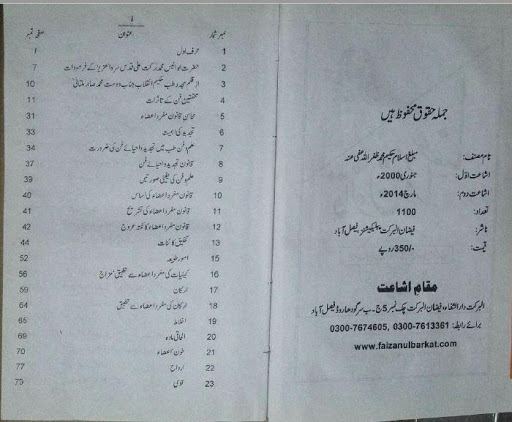 جملہ حقوق محفوظ ہیں
نام مصنف: مبلغ اسلام حکیم محمد ظفر اللہ عفی عنہ
اشاعت اول: جنوری 2000ء
اشاعت دوم: مارچ 2014ء
تعداد: 1100
ناشر: فیضان البرکت پبلیکیشنز فیصل آباد
قیمت: 350/۰ روپے
مقام اشاعت
البرکت دارالشفاء فیضان البرکت چک نمبر 5 ج۔ب سرگودھا روڈ فیصل آباد
برائے رابطہ: 0300-7613361 ,0300-7674605
www.faizanulbarkat.com
نمبر شمار عنوان صفحہ نمبر
1 حرف اول
2 حضرت ابو انیس محمد برکت علی قدس سرہ العزیز کے فرمودات 7
3 از قلم مجدد طب حکیم انقلاب جناب دوست محمد صابر ملتانی 10
4 محققین فن کے تاثرات 11
5 محاسن قانون مفرد اعضاء 31
6 تجدید کی اہمیت 33
7 علم و فن طب میں تجدید و احیائے فن کی ضرورت 34
8 قانون تجدید و احیائے فن 37
9 علم و فن کی طبی صورتیں 39
10 قانون مفرد اعضاء کی اساس 40
11 قانون مفرد اعضاء کی تشریح 41
12 قانون مفرد اعضاء کا نکتہ عروج 42
13 تخلیق کائنات 44
15 امور طبیعہ 52
16 کیفیات کی مفرد اعضاء سے تطبیق مزاج 56
17 ارکان 59
18 ارکان کی مفرد اعضاء سے تطبیق 64
19 اخلاط 65
20 الحاقی مادہ 69
21 خون اعضاء 70
22 ارواح 71
23 قویٰ 73